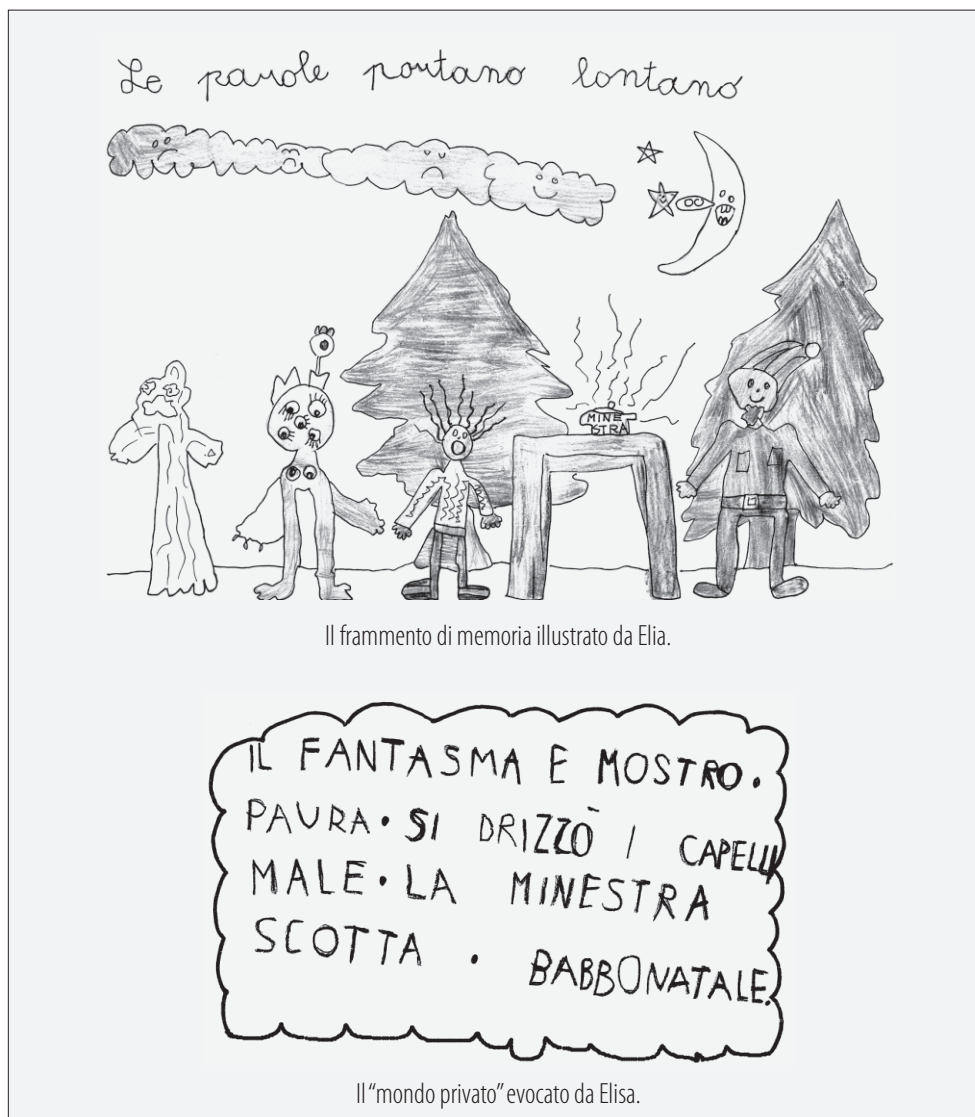 Le parole portano lontano
MINE
STRA
Il frammento di memoria illustrato da Elia.
IL FANTASMA E MOSTRO.
PAURA. SI DRIZZÒ I CAPELLI
MALE. LA MINESTRA
SCOTTA . BABBONATALE.
Il “mondo privato” evocato da Elisa.